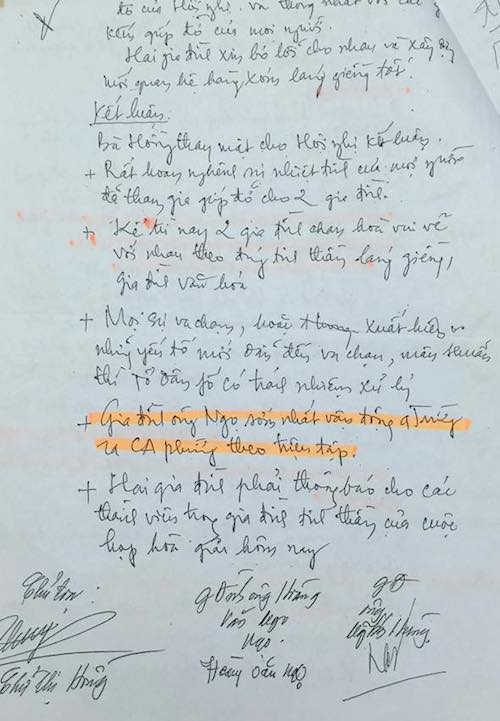 đỡ của Hội nghị. và thống nhất với các ý
kiến giúp đỡ của mọi người.
Hai gia đình xin bỏ lỗi cho nhau và xây dựng
mối quan hệ hàng xóm láng giềng tốt.
Kết luận.
Bà Hồng thay mặt cho Hội nghị kết luận.
+ Rất hoan nghênh sự nhiệt tình của mọi người
đã tham gia giúp đỡ cho 2 gia đình.
+ Kể từ nay 2 gia đình chan hoà vui vẻ
với nhau theo đúng tình thần láng giềng,
gia đình văn hoá
+ Mọi sự va chạm, hoặc xuất hiện
những yếu tố mới dẫn đến va chạm, mâu thuẫn
thì Tổ dân fố có trách nhiệm xử lý
+ Gia đình ông Ngọ sớm nhất vận động
ra CA phường theo triệu tập.
+ Hai gia đình phải thông báo cho các
thành viên trong gia đình tình thần của cuộc
họp hoà giải hôm nay
Hoàng Văn Ngọ
Thị Hồng